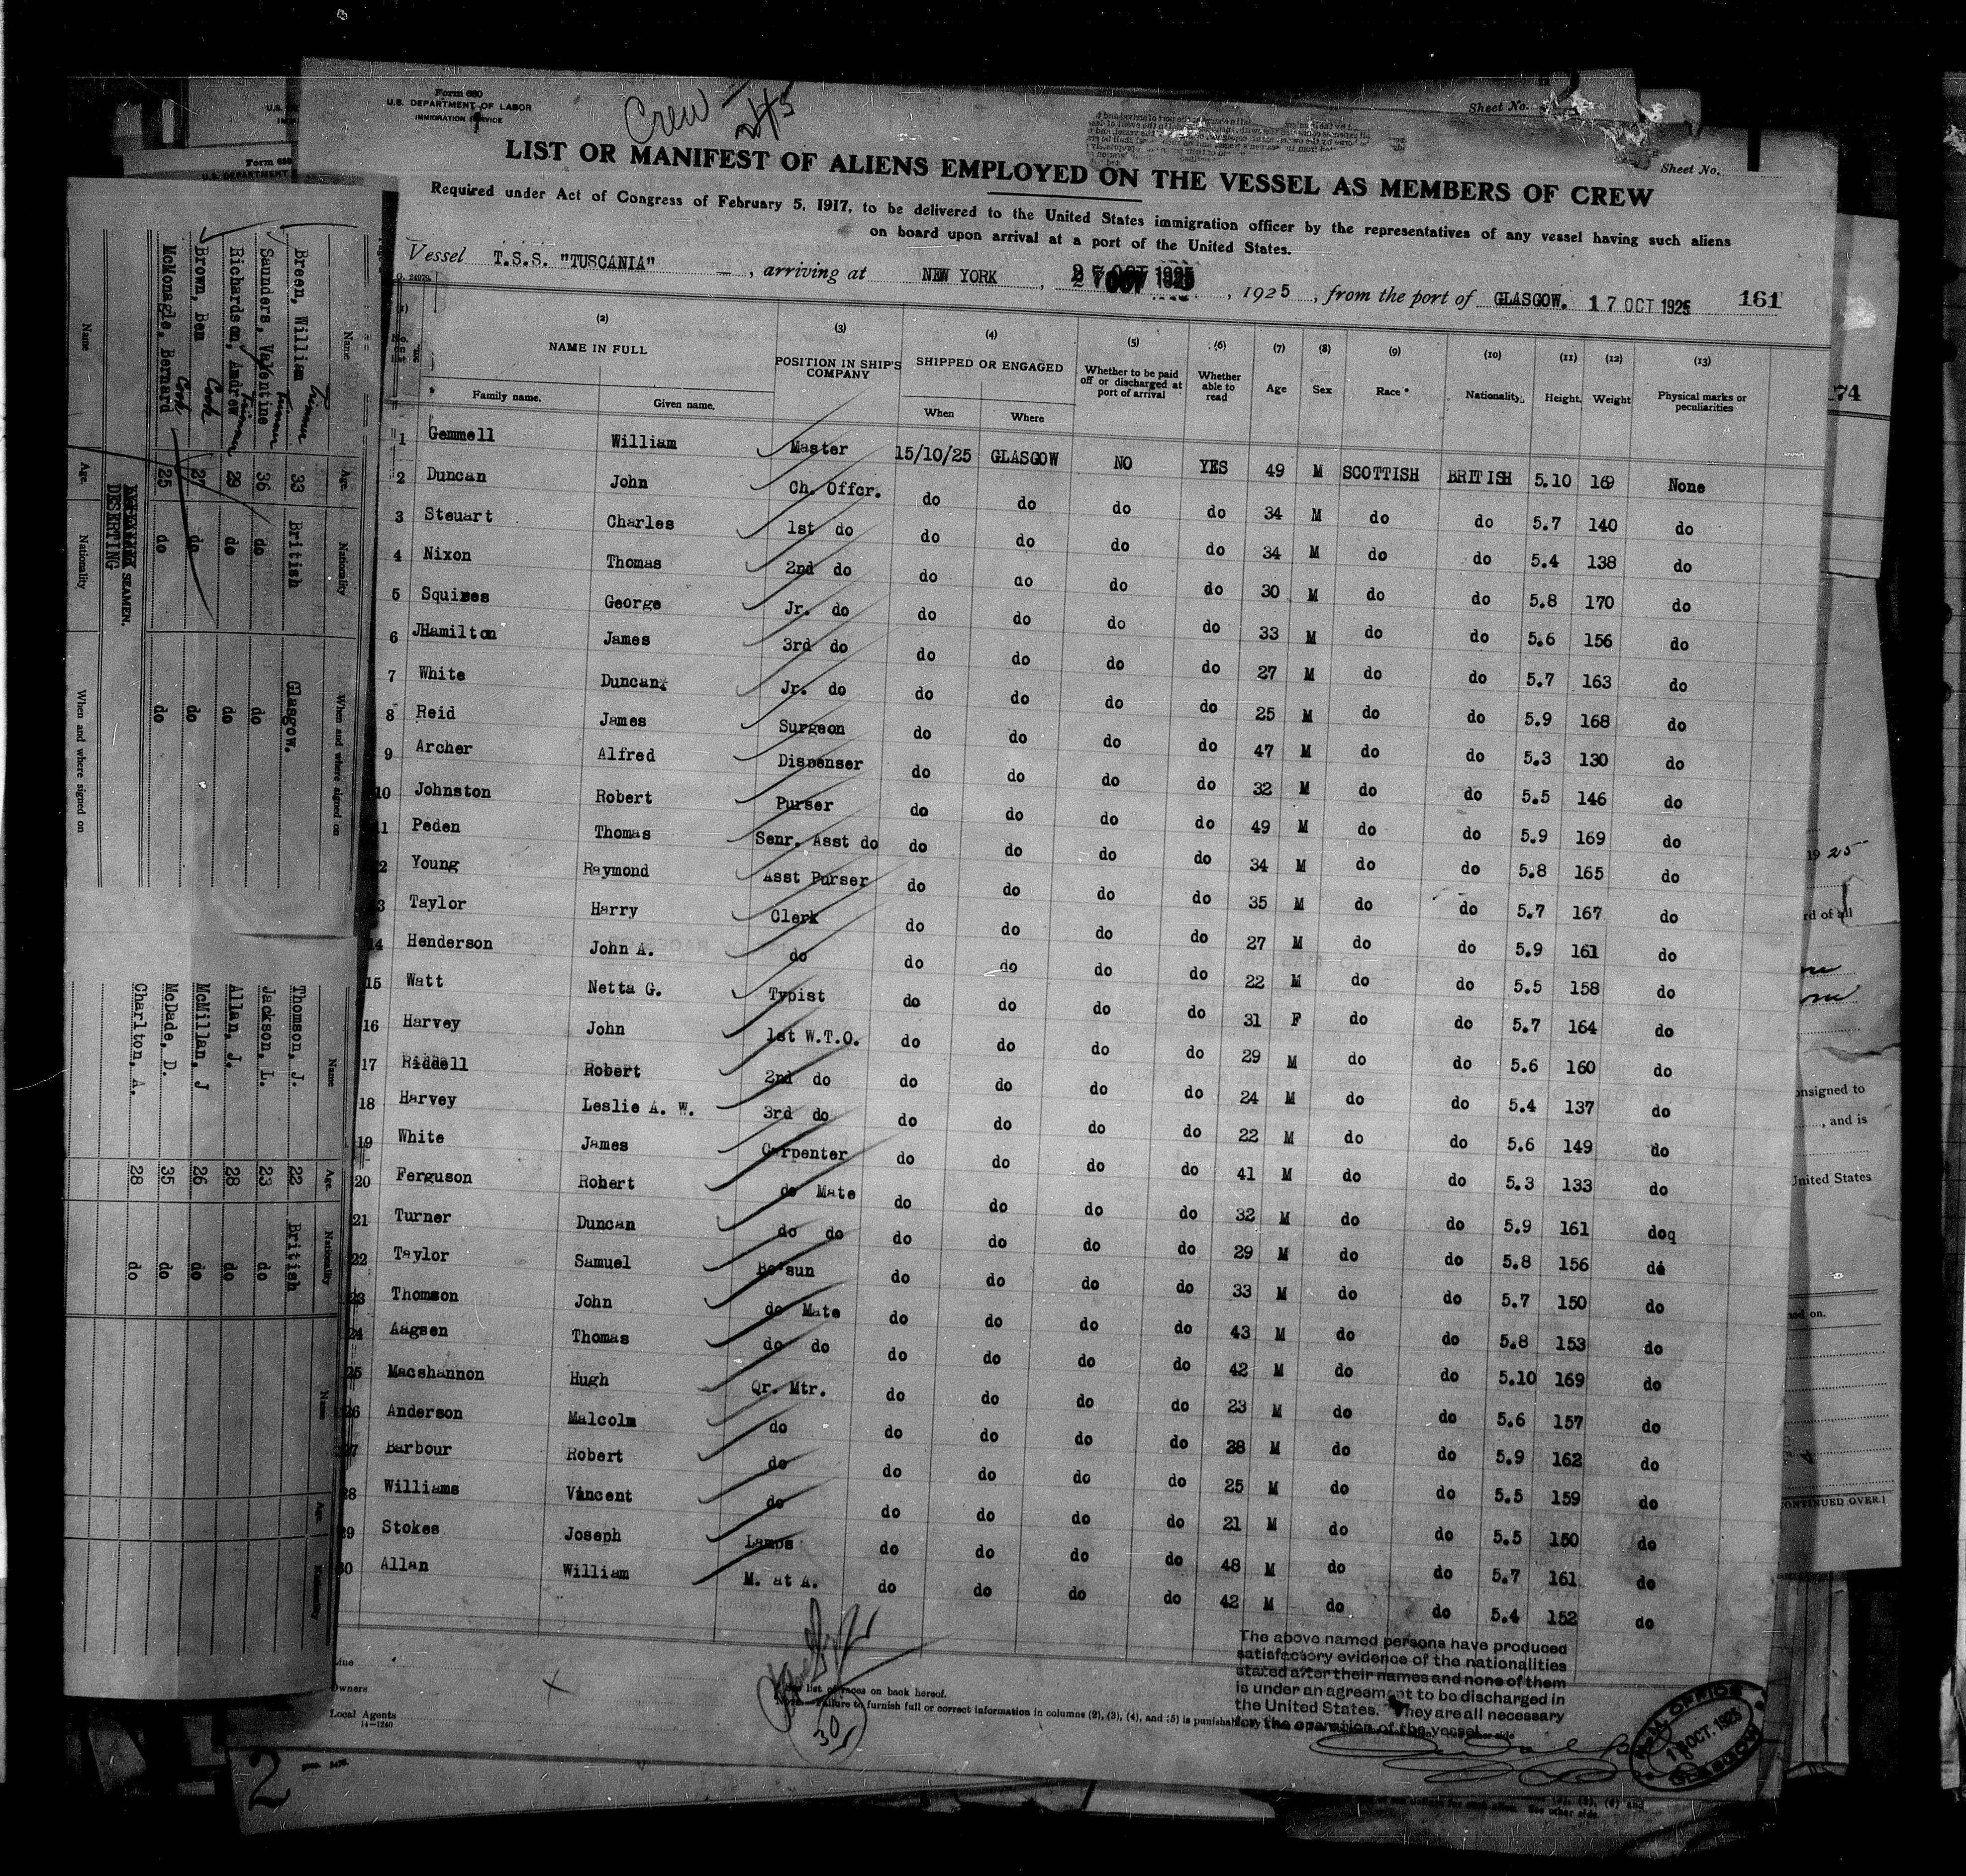 Form 680
U.S. DEPARTMENT OF LABOR
IMMIGRATION SERVICE
Crew
Sheet No.
Sheet No.
LIST OR MANIFEST OF ALIENS EMPLOYED ON THE VESSEL AS MEMBERS OF CREW
Required under Act of Congress of February 5, 1917, to be delivered to the United States immigration officer by the representatives of any vessel having such aliens
on board upon arrival at a port of the United States.
Vessel T.S.S. "TUSCANIA" , arriving at NEW YORK , 27 OCT 1925 , 1925 , from the port of GLASGOW. 17 OCT 1925 161
(1) (2) (3) (4) (5) (6) (7) (8) (9) (10) (11) (12) (13)
No. on list NAME IN FULL POSITION IN SHIP'S COMPANY SHIPPED OR ENGAGED Whether to be paid off or discharged at port of arrival Whether able to read Age Sex Race * Nationality. Height. Weight Physical marks or peculiarities
Family name. Given name. When Where
1 Gemmell William Master 15/10/25 GLASGOW NO YES 49 M SCOTTISH BRITISH 5.10 169 None
2 Duncan John Ch. Offcr. do do do do 34 M do do 5.7 140 do
3 Steuart Charles 1st do do do do do 34 M do do 5.4 138 do
4 Nixon Thomas 2nd do do do do do 30 M do do 5.8 170 do
5 Squires George Jr. do do do do do 33 M do do 5.6 156 do
6 JHamilton James 3rd do do do do do 27 M do do 5.7 163 do
7 White Duncan Jr. do do do do do 25 M do do 5.9 168 do
8 Reid James Surgeon do do do do 47 M do do 5.3 130 do
9 Archer Alfred Dispenser do do do do 32 M do do 5.5 146 do
10 Johnston Robert Purser do do do do 49 M do do 5.9 169 do
11 Peden Thomas Senr. Asst do do do do do 34 M do do 5.8 165 do
2 Young Raymond Asst Purser do do do do 35 M do do 5.7 167 do
3 Taylor Harry Clerk do do do do 27 M do do 5.9 161 do
14 Henderson John A. do do do do do 22 M do do 5.5 158 do
15 Watt Netta G. Typist do do do do 31 F do do 5.7 164 do
16 Harvey John 1st W.T.O. do do do do 29 M do do 5.6 160 do
17 Riddell Robert 2nd do do do do do 24 M do do 5.4 137 do
18 Harvey Leslie A. W. 3rd do do do do do 22 M do do 5.6 149 do
19 White James Carpenter do do do do 41 M do do 5.3 133 do
20 Ferguson Robert do Mate do do do do 32 M do do 5.9 161 doq
21 Turner Duncan do do do do do do 29 M do do 5.8 156 do
22 Taylor Samuel Bo'sun do do do do 33 M do do 5.7 150 do
23 Thomson John do Mate do do do do 43 M do do 5.8 153 do
24 Aagsen Thomas do do do do do do 42 M do do 5.10 169 do
25 Macshannon Hugh Qr. Mtr. do do do do 23 M do do 5.6 157 do
26 Anderson Malcolm do do do do do 38 M do do 5.9 162 do
27 Barbour Robert do do do do do 25 M do do 5.5 159 do
28 Williams Vincent do do do do do 21 M do do 5.5 150 do
29 Stokes Joseph Lamps do do do do 48 M do do 5.7 161 do
30 Allan William M. at A. do do do do 42 M do do 5.4 152 do
Line
Owners
Local Agents
14—1240
See list of races on back hereof.
Note.—Failure to furnish full or correct information in columns (2), (3), (4), and (5) is punishable
30
The above named persons have produced
satisfactory evidence of the nationalities
stated after their names and none of them
is under an agreement to be discharged in
the United States. They are all necessary
for the operation of the vessel
OFFICE
OCT. 1925
GLASGOW
2
Name Age. Nationality When and where signed on
Breen, William Trimmer 33 British Glasgow.
Saunders, Valentine Trimmer 36 do do
Richardson, Andrew Trimmer 29 do do
Brown, Ben Cook 27 do do
McMonagle, Bernard Cook 25 do do
DESERTING SEAMEN.
Name Age. Nationality When and where signed on
Name Age. Nationality
Thomson, J. 22 British
Jackson, L. 23 do
Allan, J. 28 do
McMillan, J 26 do
McDade, D. 35 do
Charlton, A. 28 do
Name Age. Nationality
Form 680
U.S. DEPARTMENT
74
1925
rd of all
onsigned to
, and is
United States
ed on.
CONTINUED OVER.)
See other side.